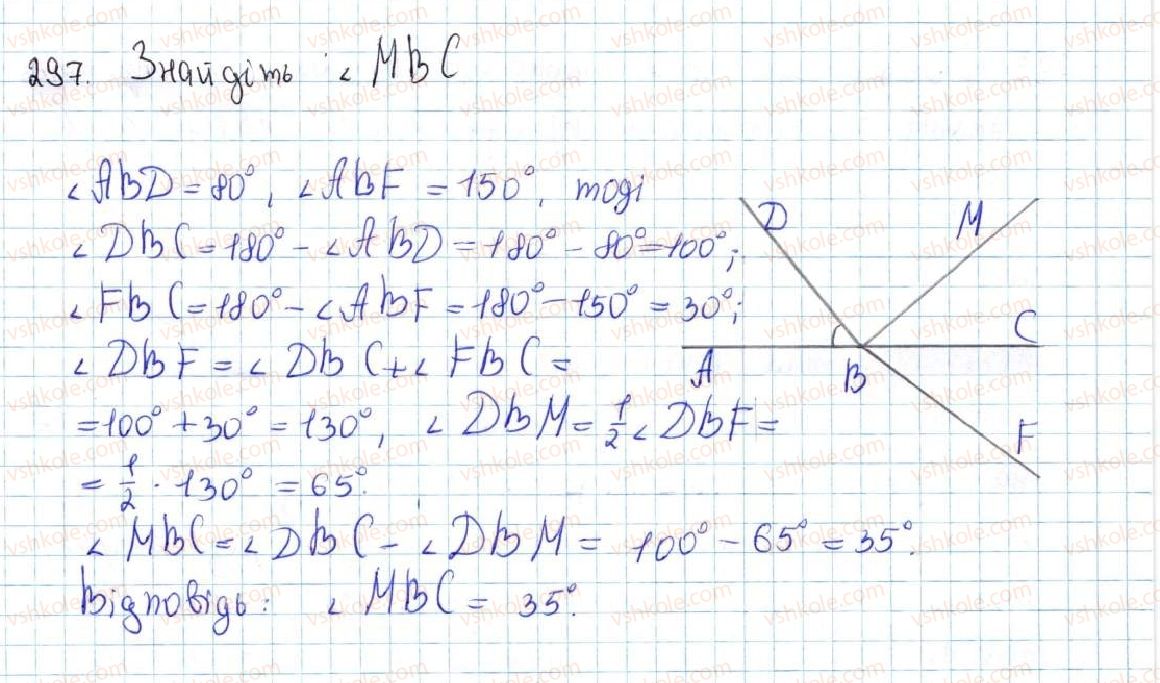 297. Знайдіть ∠ MBC
∠ABD = 80°, ∠ABF = 150°, тоді
∠DBC = 180° - ∠ABD = 180° - 80° = 100°;
∠FBC = 180° - ∠ABF = 180° - 150° = 30°;
∠DBF = ∠DBC + ∠FBC =
= 100° + 30° = 130°, ∠DBM = 1/2 ∠DBF =
= 1/2 · 130° = 65°.
∠MBC = ∠DBC - ∠DBM = 100° - 65° = 35°.
Відповідь: ∠MBC = 35°.
D
M
A
B
C
F
vshkole.com